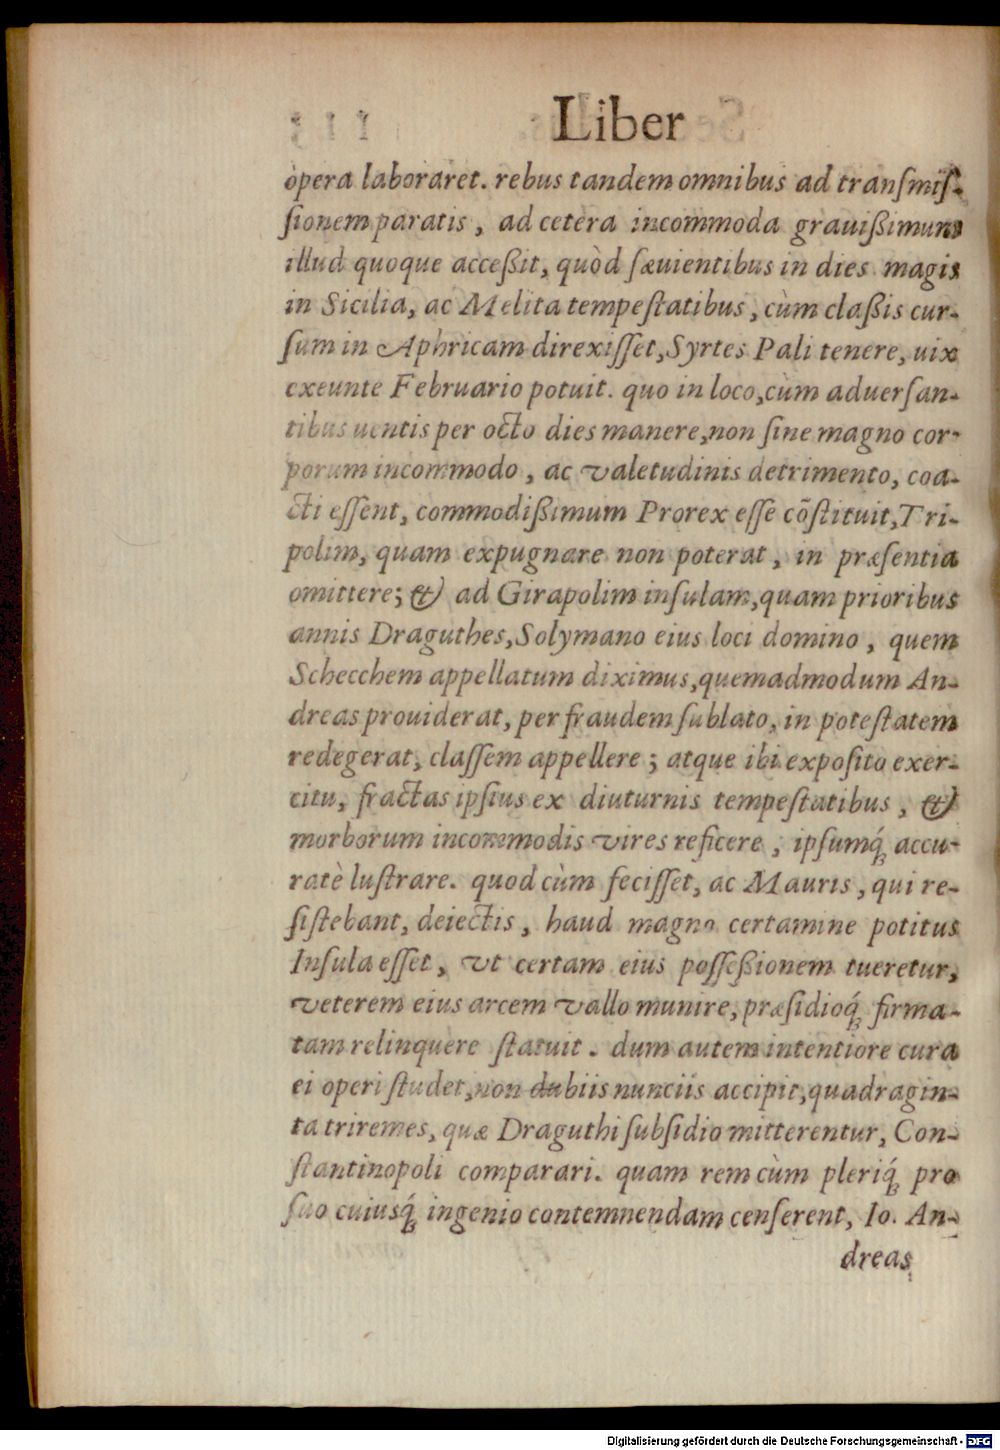 Liber
opera laboraret. rebus tandem omnibus ad transmiſ-
ſionem paratis, ad cetera incommoda grauißimum
illud quoque acceßit, quòd ſæuientibus in dies magis
in Sicilia, ac Melita tempeſtatibus, cùm claßis cur-
ſum in Aphricam direxiſſet, Syrtes Pali tenere, uix
exeunte Februario potuit. quo in loco, cùm aduerſan-
tibus uentis per octo dies manere, non ſine magno cor-
porum incommodo, ac valetudinis detrimento, coa-
cti eſſent, commodißimum Prorex eſſe cõſtituit, Tri-
polim, quam expugnare non poterat, in præſentia
omittere; & ad Girapolim inſulam, quam prioribus
annis Draguthes, Solymano eius loci domino, quem
Schecchem appellatum diximus, quemadmodum An-
dreas prouiderat, per fraudem ſublato, in poteſtatem
redegerat, claſſem appellere; atque ibi expoſito exer-
citu, fractas ipſius ex diuturnis tempeſtatibus, &
morborum incommodis vires reficere, ipſumq́ accu-
ratè luſtrare. quod cùm feciſſet, ac Mauris, qui re-
ſiſtebant, deiectis, haud magno certamine potitus
Inſula eſſet, vt certam eius poſſeßionem tueretur,
veterem eius arcem vallo munire, præſidioq́ firma-
tam relinquere ſtatuit. dum autem intentiore cura
ei operi ſtudet, non dubiis nunciis accipit, quadragin-
ta triremes, quæ Draguthi ſubſidio mitterentur, Con-
ſtantinopoli comparari. quam rem cùm pleriq́ pro
ſuo cuiusq́ ingenio contemnendam cenſerent, Io. An-
dreas
Digitalisierung gefördert durch die Deutsche Forschungsgemeinschaft - DFG